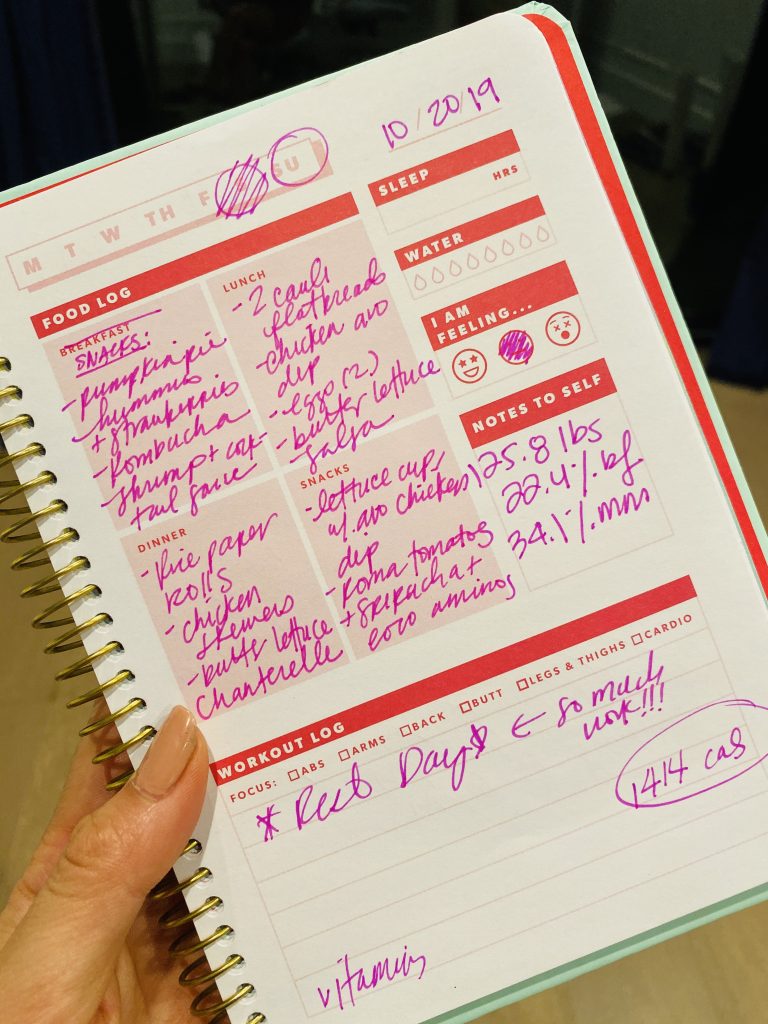 10/20/19
M T W TH F SU
SLEEP
HRS
WATER
I AM
FEELING...
NOTES TO SELF
125.8 lbs
22.4% bf
34.1% mm
FOOD LOG
BREAKFAST
SNACKS:
- pumpkin pie
hummus
+ strawberries
- kombucha
- shrimp + cock-
tail sauce
LUNCH
- 2 cauli
flatbreads
- chicken avo
dip
- eggs (2)
- butter lettuce
- salsa
DINNER
- rice paper
rolls
- chicken
skewers
- butter lettuce
chanterelle
SNACKS
- lettuce cups
w/ avo chicken
dip
- roma tomatoes
+ sriracha +
coco aminos
WORKOUT LOG
FOCUS: ABS ARMS BACK BUTT LEGS & THIGHS CARDIO
* Rest Day * ← so much
work!!!
1414 cas
vitamins